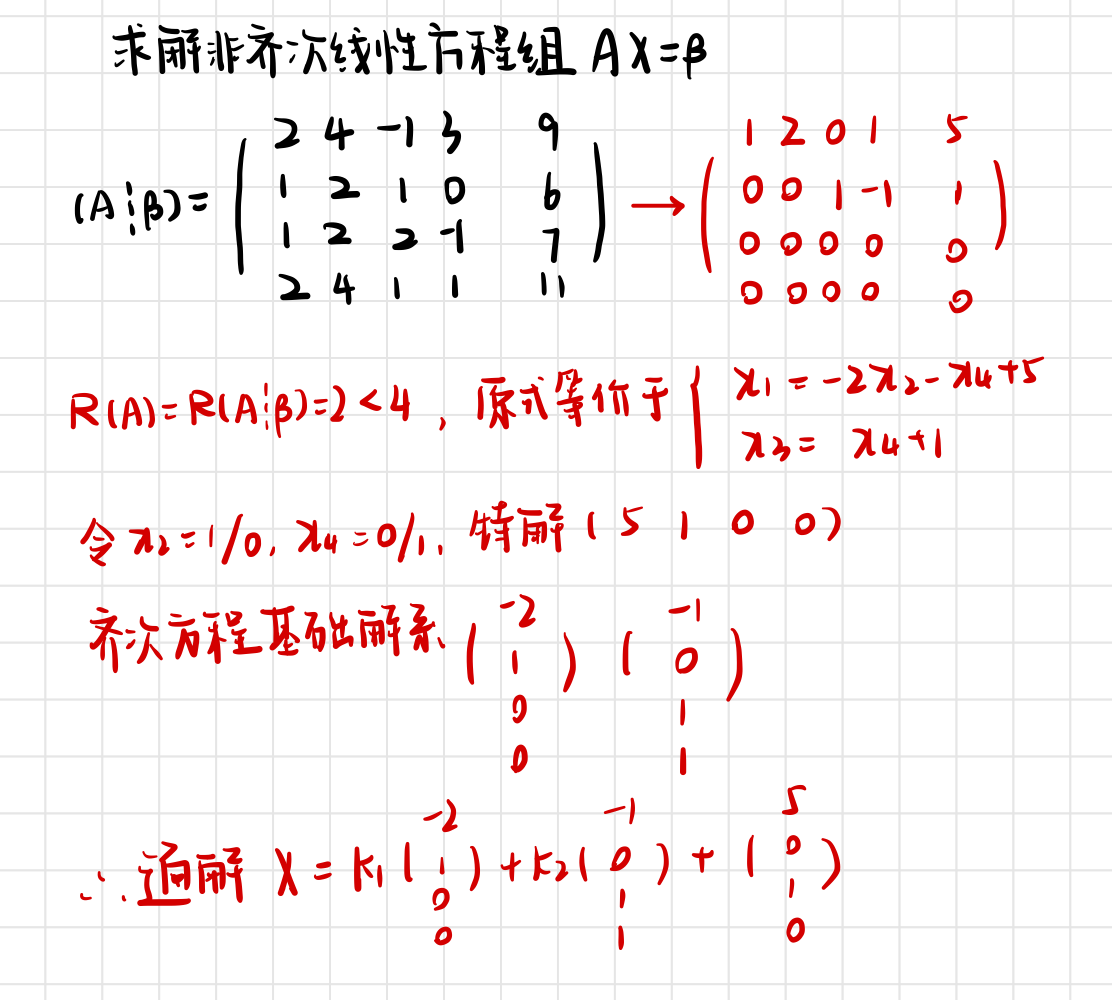 求解非齐次线性方程组 AX=β
2 4 -1 3 9 1 2 0 1 5
(A⋮β)= ( 1 2 1 0 6 ) → ( 0 0 1 -1 1 )
1 2 2 -1 7 0 0 0 0 0
2 4 1 1 11 0 0 0 0 0
R(A)=R(A⋮β)=2<4, 原式等价于 { x1 = -2x2 - x4+5
x3 = x4+1
令 x2=1/0, x4=0/1, 特解 ( 5 1 0 0 )
齐次方程基础解系 ( -2 1 0 0 ) ( -1 0 1 1 )
∴ 通解 X = k1 ( -2 1 0 0 ) + k2 ( -1 0 1 1 ) + ( 5 0 1 0 )